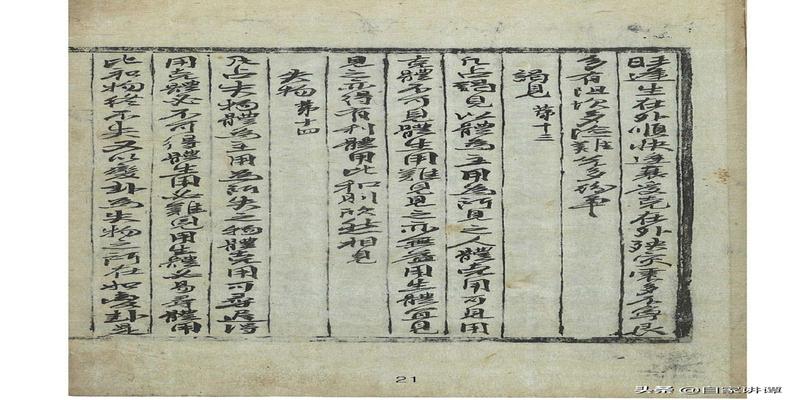 旺逢生在外順快逢衰受克在外殃災多不寧艮
多有阻坎多險難兌多紛爭
謁見 第十三
凡占謁見以體為主用為所見之人體克用可見用
克體不可見體生用難見見之而無益用生體可見
見之而得有利體用比和則歡然相見
失物 第十四
凡占失物體為主用為所失之物體克用可尋遲得
用克體必不可得體生用必難見用生體必易尋體用
比和物終不失又以變卦為失物之所在如變卦是
21
头条 @自家讲谭